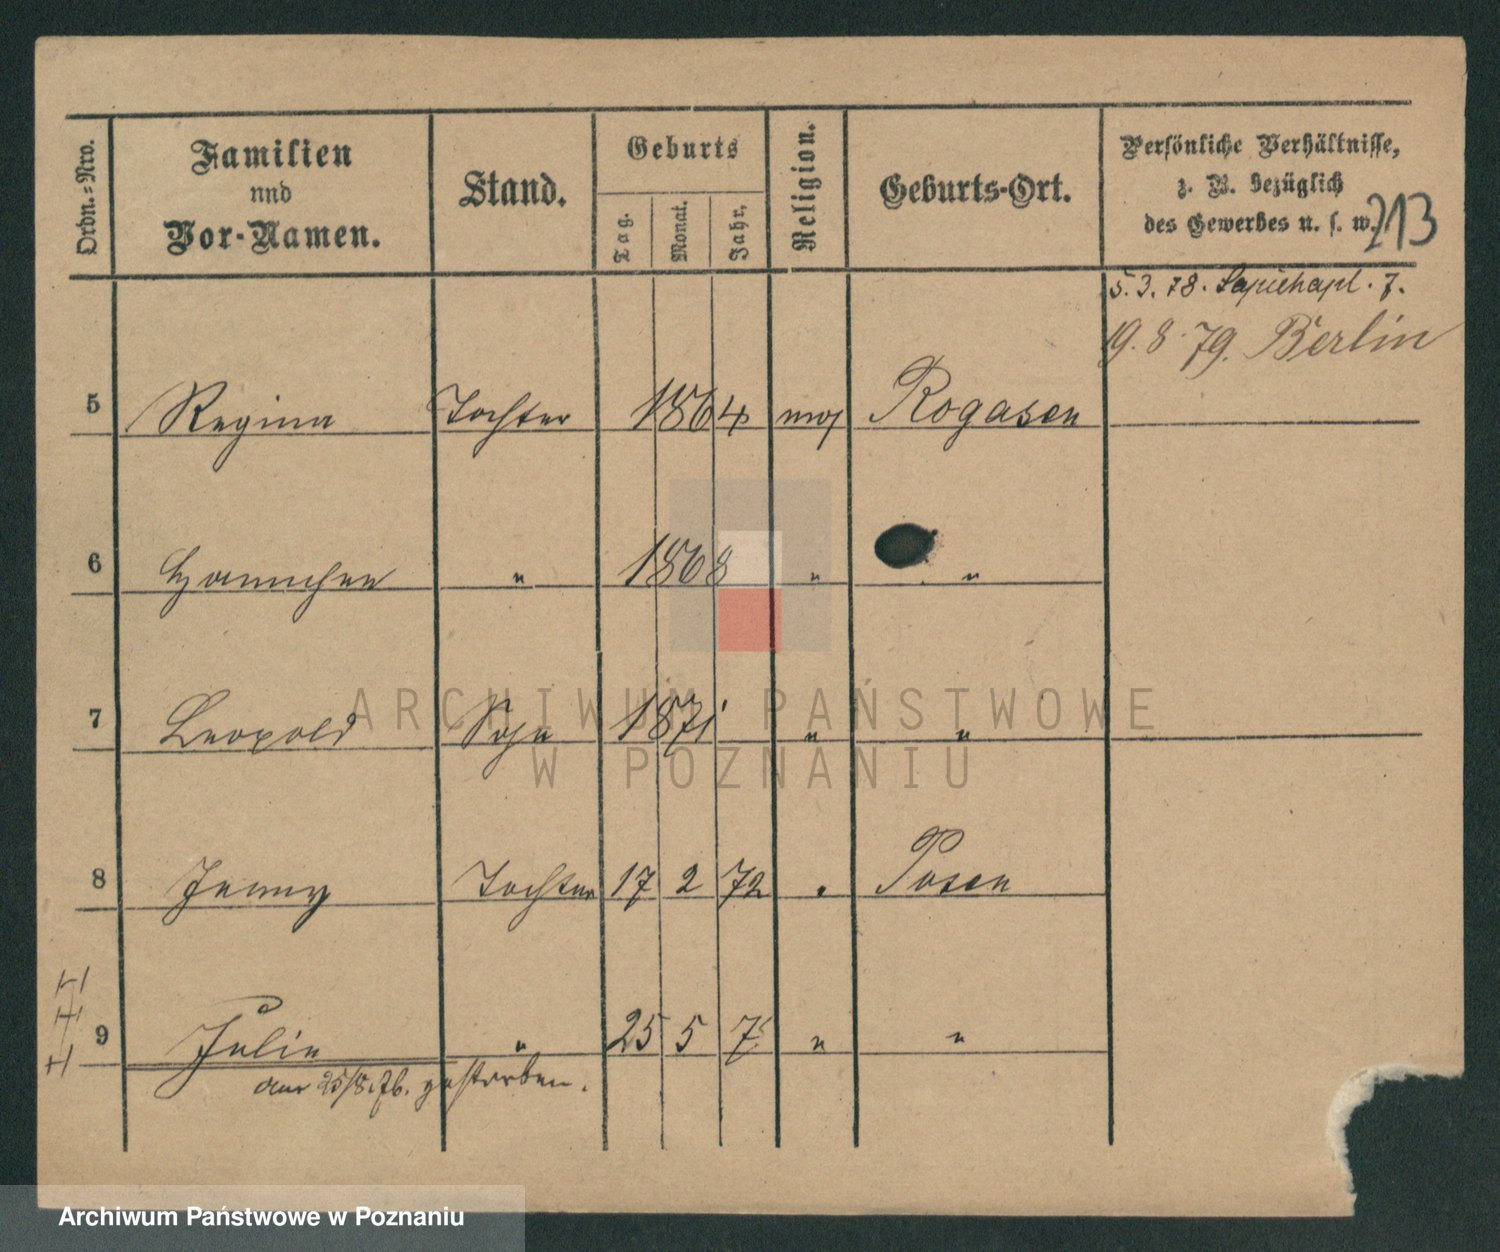 Ordn.=Nro.
Familien
und
Vor-Namen.
Stand.
Geburts
Tag.
Monat.
Jahr,
Religion.
Geburts-Ort.
Persönliche Verhältnisse,
z. B. bezüglich
des Gewerbes u. s. w.
213
5. 3. 78. Sapiehapl. 7.
19. 8. 79. Berlin
5 Regina Tochter 1864 mos Rogasen
6 Hannchen " 1868 " "
7 Leopold Sohn 1871 " "
8 Jenny Tochter 17 2 72 " Posen
9 Julie " 25 5 75 " "
am 25/8.76. gestorben.
ARCHIWUM PAŃSTWOWE
W POZNANIU
Archiwum Państwowe w Poznaniu